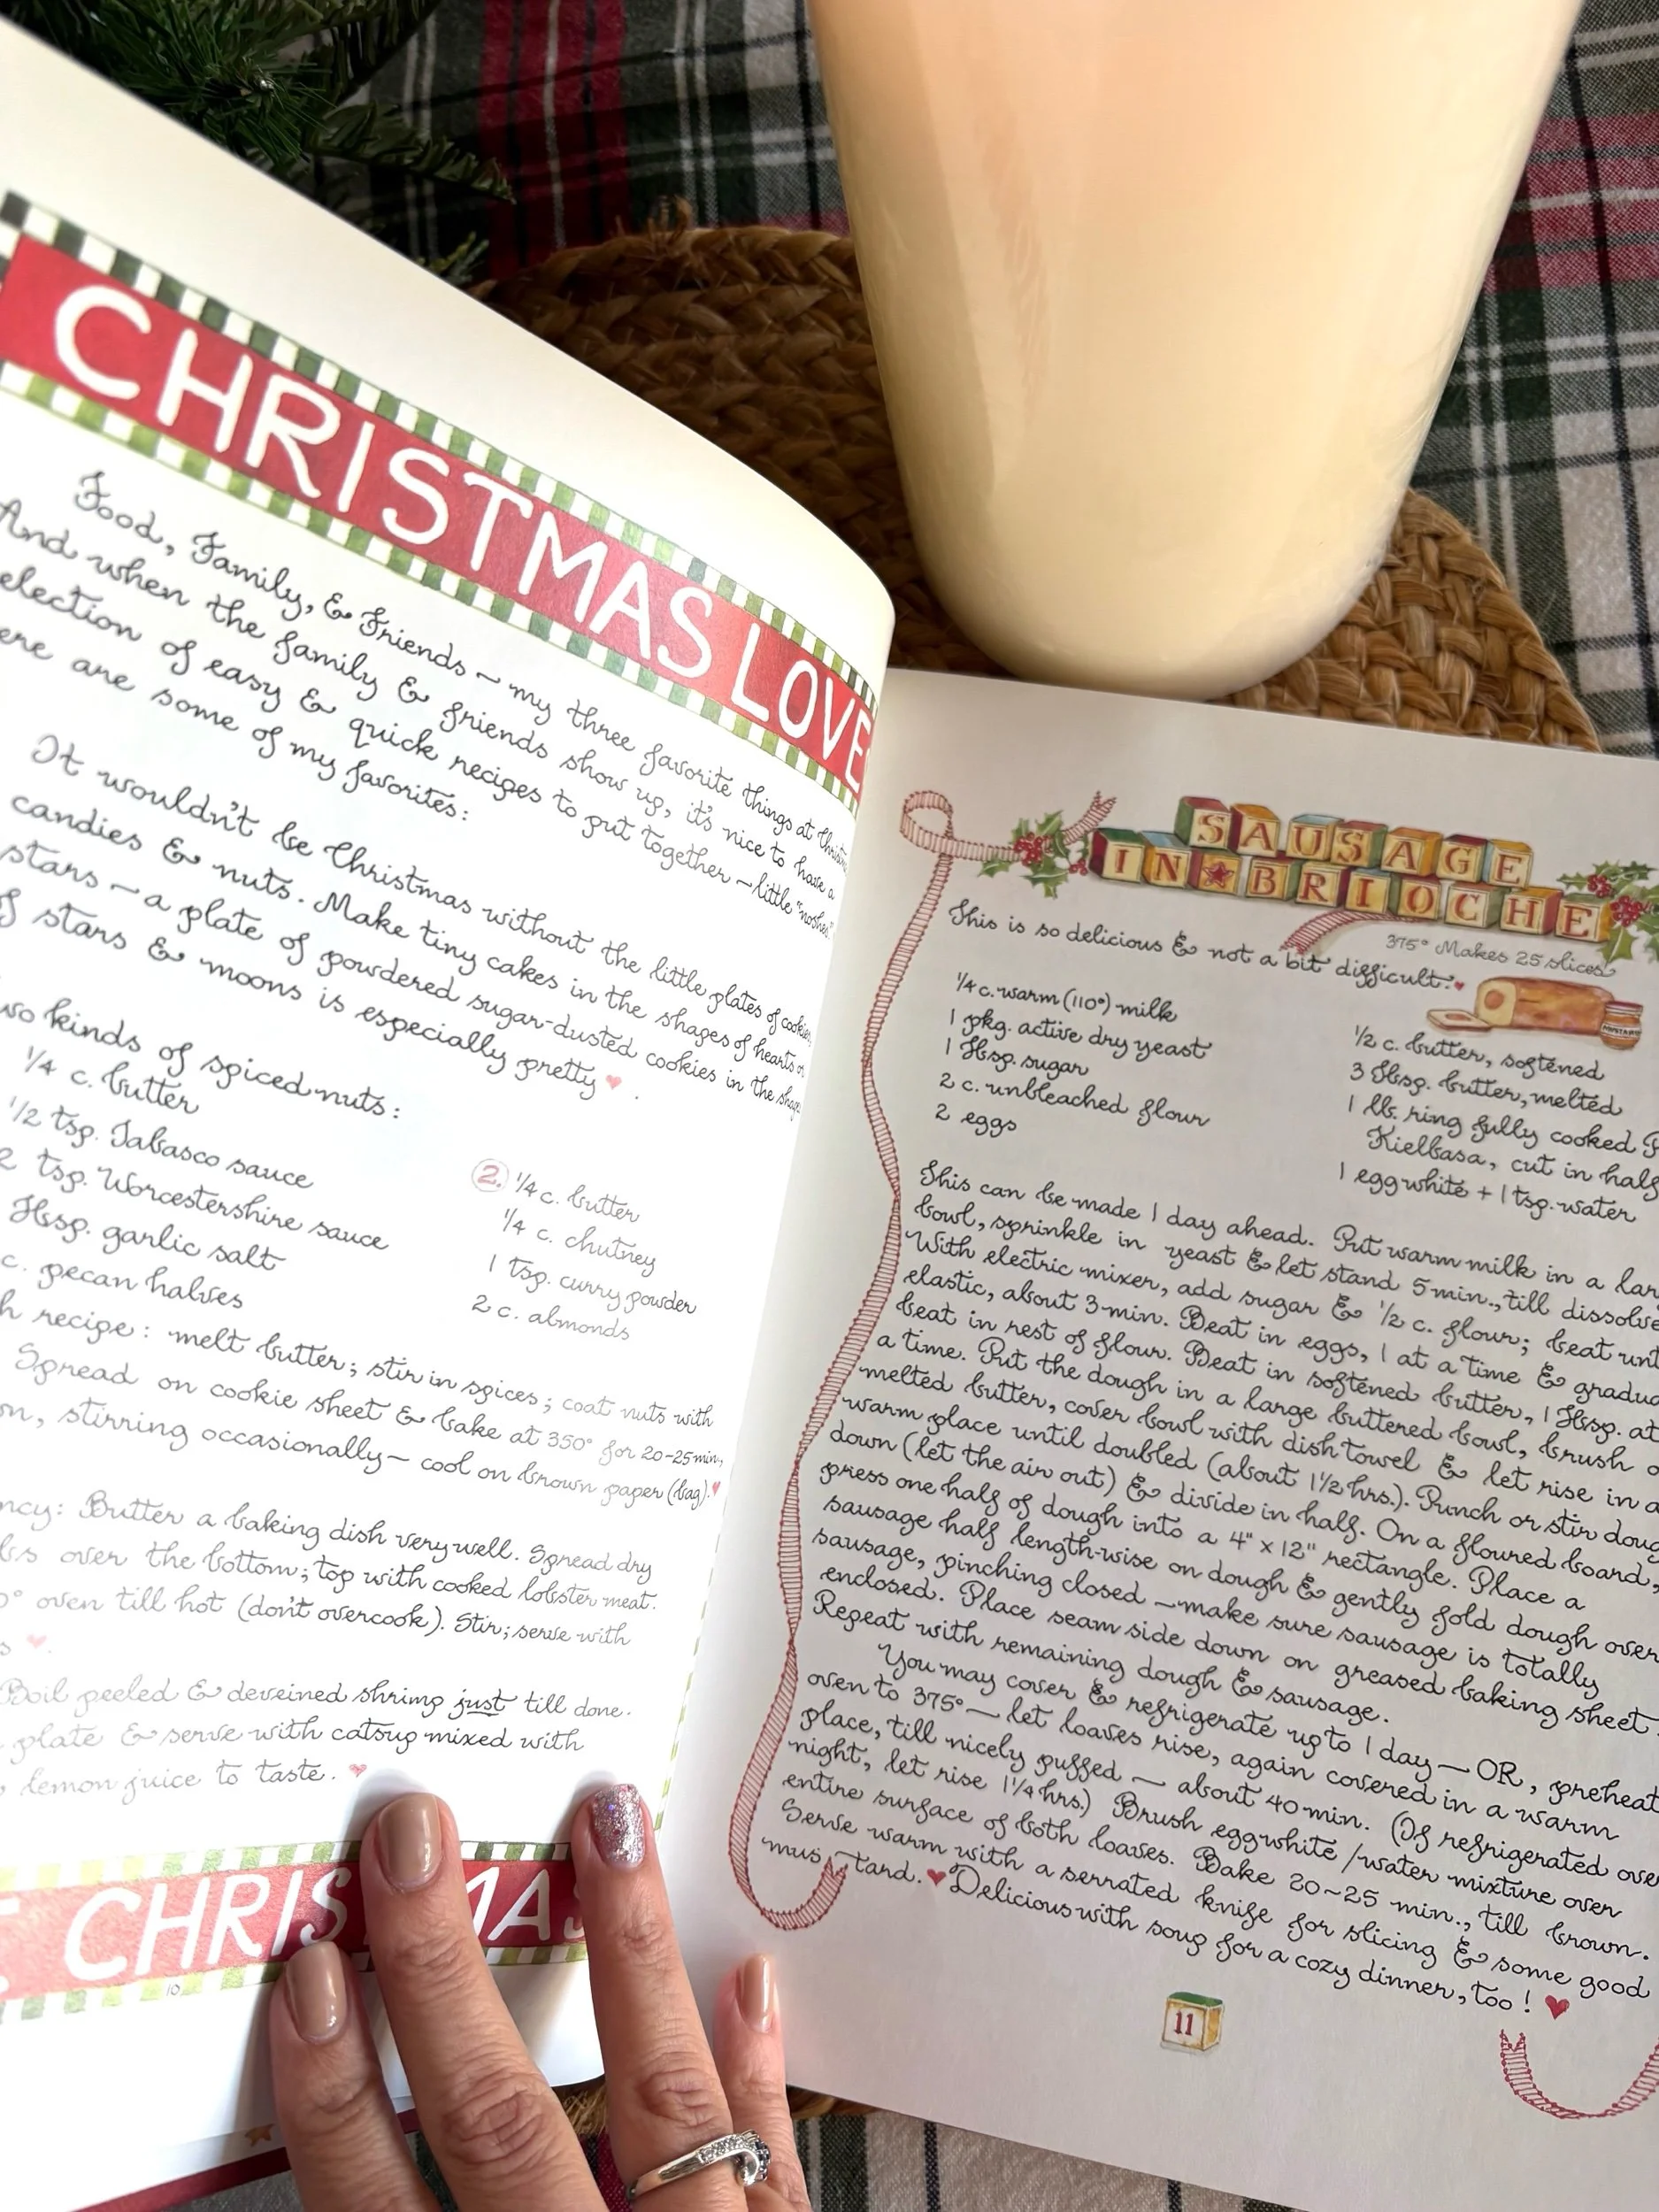 CHRISTMAS LOVE
Food, Family, & Friends – my three favorite things at
And when the family & friends show up, it's nice to have a
election of easy & quick recipes to put together – little "noshes."
ere are some of my favorites:
It wouldn't be Christmas without the little plates of cookies
candies & nuts. Make tiny cakes in the shapes of hearts or
stars – a plate of powdered sugar-dusted cookies in the shape
of stars & moons is especially pretty ♥.
wo kinds of spiced nuts:
1/4 c. butter
1/2 tsp. Tabasco sauce
tsp. Worcestershire sauce
Tbsp. garlic salt
c. pecan halves
2. 1/4 c. butter
1/4 c. chutney
1 tsp. curry powder
2 c. almonds
h recipe: melt butter; stir in spices; coat nuts with
Spread on cookie sheet & bake at 350° for 20-25 min,
on, stirring occasionally – cool on brown paper (bag).♥
ncy: Butter a baking dish very well. Spread dry
over the bottom; top with cooked lobster meat.
0° oven till hot (don't overcook). Stir; serve with
s ♥.
Boil peeled & deveined shrimp just till done.
plate & serve with catsup mixed with
lemon juice to taste. ♥
CHRIS MAS
10
SAUSAGE
IN ★ BRIOCHE
375° Makes 25 slices
This is so delicious & not a bit difficult.♥
MUSTARD
1/4 c. warm (110°) milk
1 pkg. active dry yeast
1 Tbsp. sugar
2 c. unbleached flour
2 eggs
1/2 c. butter, softened
3 Tbsp. butter, melted
1 lb. ring fully cooked P
Kielbasa, cut in half
1 egg white + 1 tsp. water
This can be made 1 day ahead. Put warm milk in a lar
bowl, sprinkle in yeast & let stand 5 min., till dissolve
With electric mixer, add sugar & 1/2 c. flour; beat unt
elastic, about 3 min. Beat in eggs, 1 at a time & gradua
beat in rest of flour. Beat in softened butter, 1 Tbsp. at
a time. Put the dough in a large buttered bowl, brush o
melted butter, cover bowl with dish towel & let rise in a
warm place until doubled (about 1 1/2 hrs.). Punch or stir doug
down (let the air out) & divide in half. On a floured board,
press one half of dough into a 4" x 12" rectangle. Place a
sausage half length-wise on dough & gently fold dough over
sausage, pinching closed – make sure sausage is totally
enclosed. Place seam side down on greased baking sheet.
Repeat with remaining dough & sausage.
You may cover & refrigerate up to 1 day – OR, preheat
oven to 375° – let loaves rise, again covered in a warm
place, till nicely puffed – about 40 min. (If refrigerated over
night, let rise 1 1/4 hrs.) Brush egg white/water mixture over
entire surface of both loaves. Bake 20-25 min., till brown.
Serve warm with a serrated knife for slicing & some good
mus tard. ♥ Delicious with soup for a cozy dinner, too! ♥
11